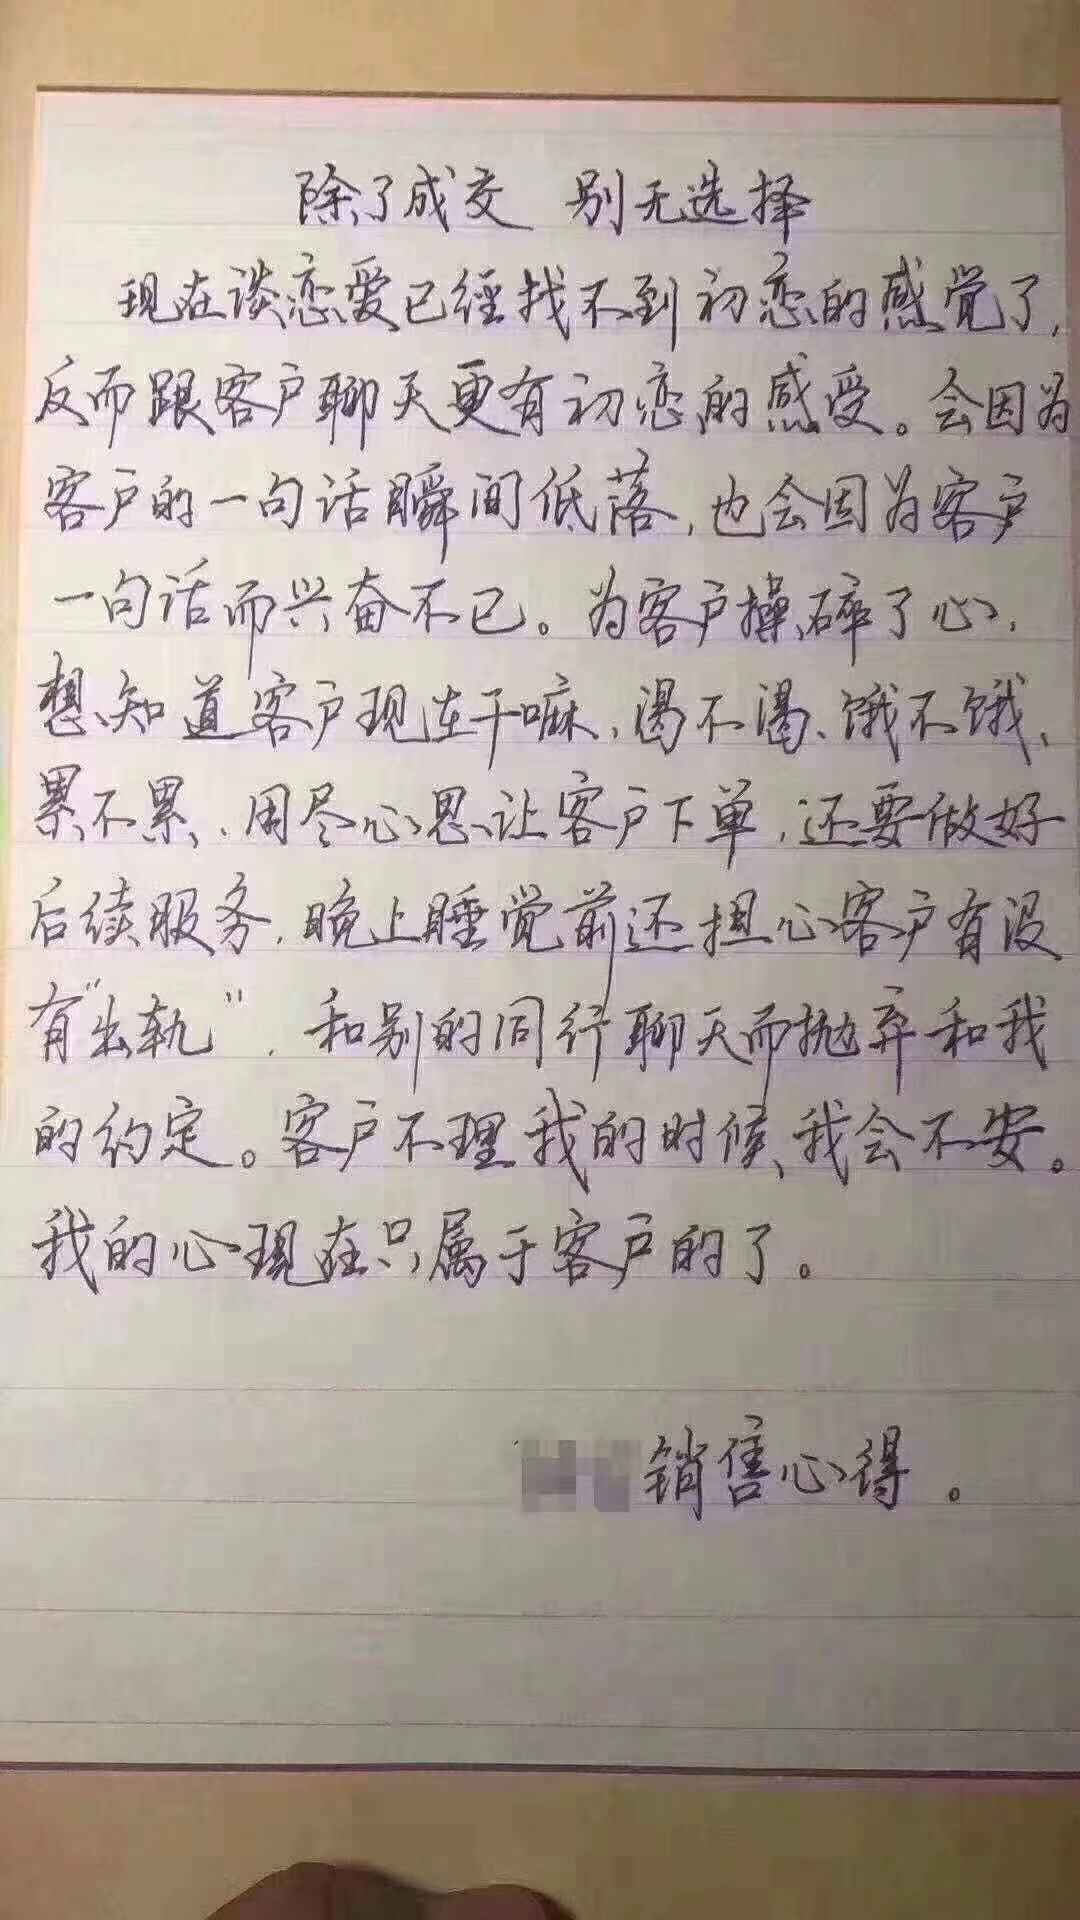 除了成交 别无选择
现在谈恋爱已经找不到初恋的感觉了,
反而跟客户聊天更有初恋的感受。会因为
客户的一句话瞬间低落,也会因为客户
一句话而兴奋不已。为客户操碎了心,
想知道客户现在干嘛,渴不渴、饿不饿、
累不累,用尽心思让客户下单,还要做好
后续服务,晚上睡觉前还担心客户有没
有“出轨”,和别的同行聊天而抛弃和我
的约定。客户不理我的时候,我会不安。
我的心现在只属于客户的了。
销售心得。